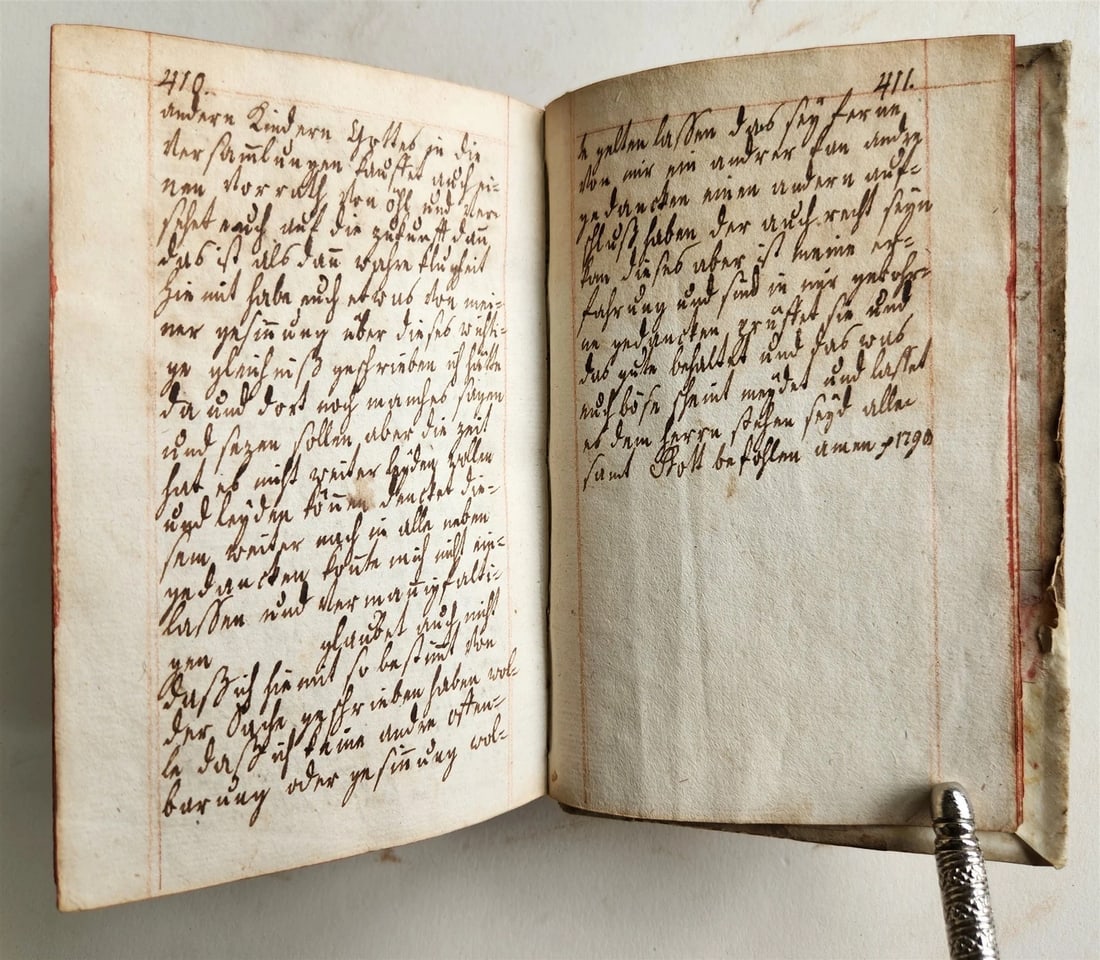 410.
andern Kindern Gottes in die
Versam̄lungen kauffet auch ei-
nen Vorrath von öhl und ver-
sehet euch auf die zukunfft dan̄
das ist als dan̄ wahre klugheit
hie mit habe euch etwas von mei-
ner gesin̄ung über dieses wichti-
ge gleichniß geschrieben ich hätte
da und dort noch manches sagen
und sezen sollen aber die zeit
hat es nicht weiter leyden wollen
und leyden kön̄en dencket die-
sem weiter nach in alle neben
gedancken konte mich nicht ein-
lassen und verman̄igfalti-
gen glaubet auch nicht
daß ich hiemit so bestim̄t von
der Sache geschrieben haben wol-
le daß ich keine andre offen-
barung oder gesin̄ung wol-
411.
le gelten lassen das sey ferne
von mir ein andrer kan andre
gedancken einen andern auf-
schluß haben der auch recht seyn
kan dieses aber ist meine er-
fahrung und sind in mir gebohr-
ne gedancken prüffet sie und
das gute behaltet und das was
euch böse scheint meydet und lasset
es dem herrn stehen seyd alle
samt Gott befohlen amen 1790